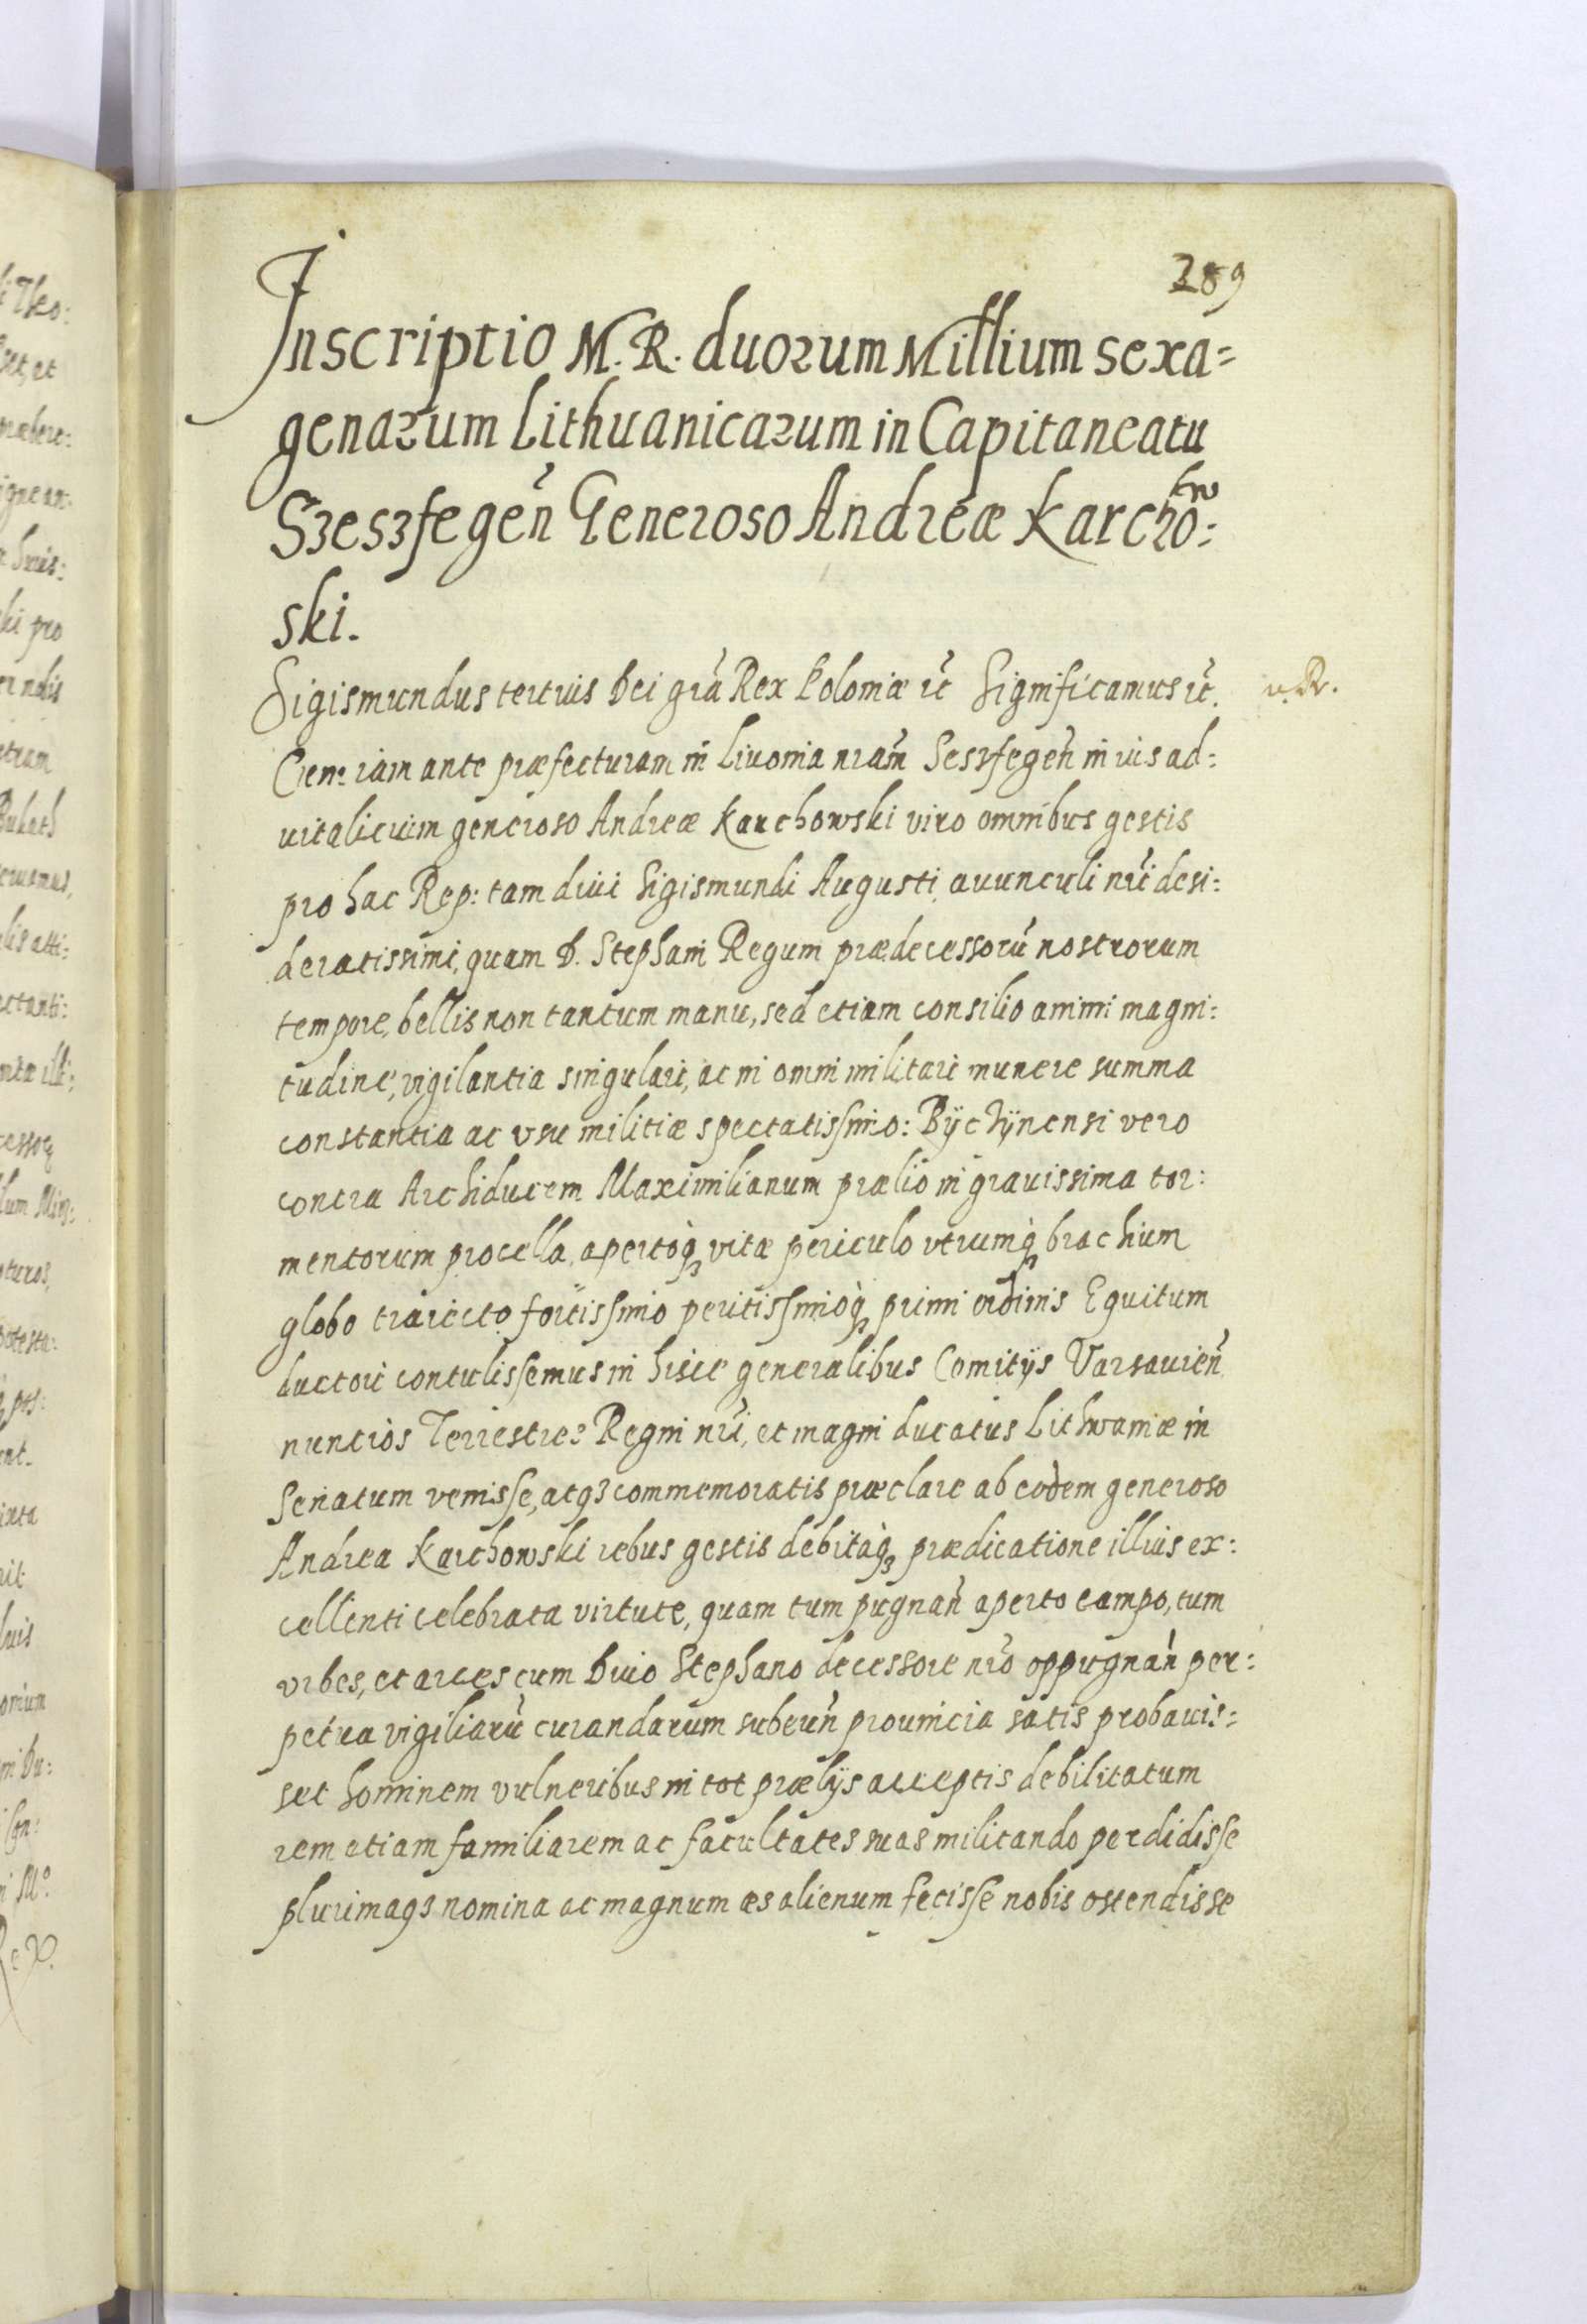 289
Inscriptio M. R. duorum Millium sexa=
genarum Lithuanicarum in Capitaneatu
Szeszfegeñ Generoso Andreæ Karcho:
ski.
Sigismundus tertius Dei gr̃a Rex Poloniæ ec̃ Significamus ec̃.
Cum iam ante præfecturam in Liuonia nr̃am Seszfegeñ in uis ad:
uitalicium generoso Andreæ Karchowski viro omnibus gestis
pro hac Rep: tam diui Sigismundi Augusti auunculi nr̃i desi:
deratissimi, quam D. Stephani Regum prædecessorũ nostrorum
tempore, bellis non tantum manu, sed etiam consilio animi magni:
tudine, vigilantia singulari, ac in omni militari munere summa
constantia ac vsu militiæ spectatissimo: Bÿchÿnensi vero
contra Archiducem Maximilianum prælio in grauissima tor:
mentorum procella, apertoq̀ꝫ vitæ periculo vtrumq̀ꝫ brachium
globo traiecto fortissimo peritissimoq̀ꝫ primi ordinis Equitum
ductori contulissemus in hisce generalibus Comitÿs Varsauieñ
nuntios Terrestres Regni nr̃i, et magni ducatus Lithwaniæ in
Senatum venisse, atqꝫ commemoratis præclare ab eodem generoso
Andrea Karchowski rebus gestis debitaq̀ꝫ prædicatione illius ex:
cellenti celebrata virtute, quam tum pugnañ aperto campo, tum
vrbes, et arces cum Diuo Stephano decessore nr̃o oppugnañ per:
petua vigiliarũ curandarum subeuñ prouincia satis probauis:
set hominem vulneribus in tot prælÿs acceptis debilitatum
rem etiam familiarem ac facultates suas militando perdidisse
plurimaqꝫ nomina ac magnum æs alienum fecisse nobis ostendisse